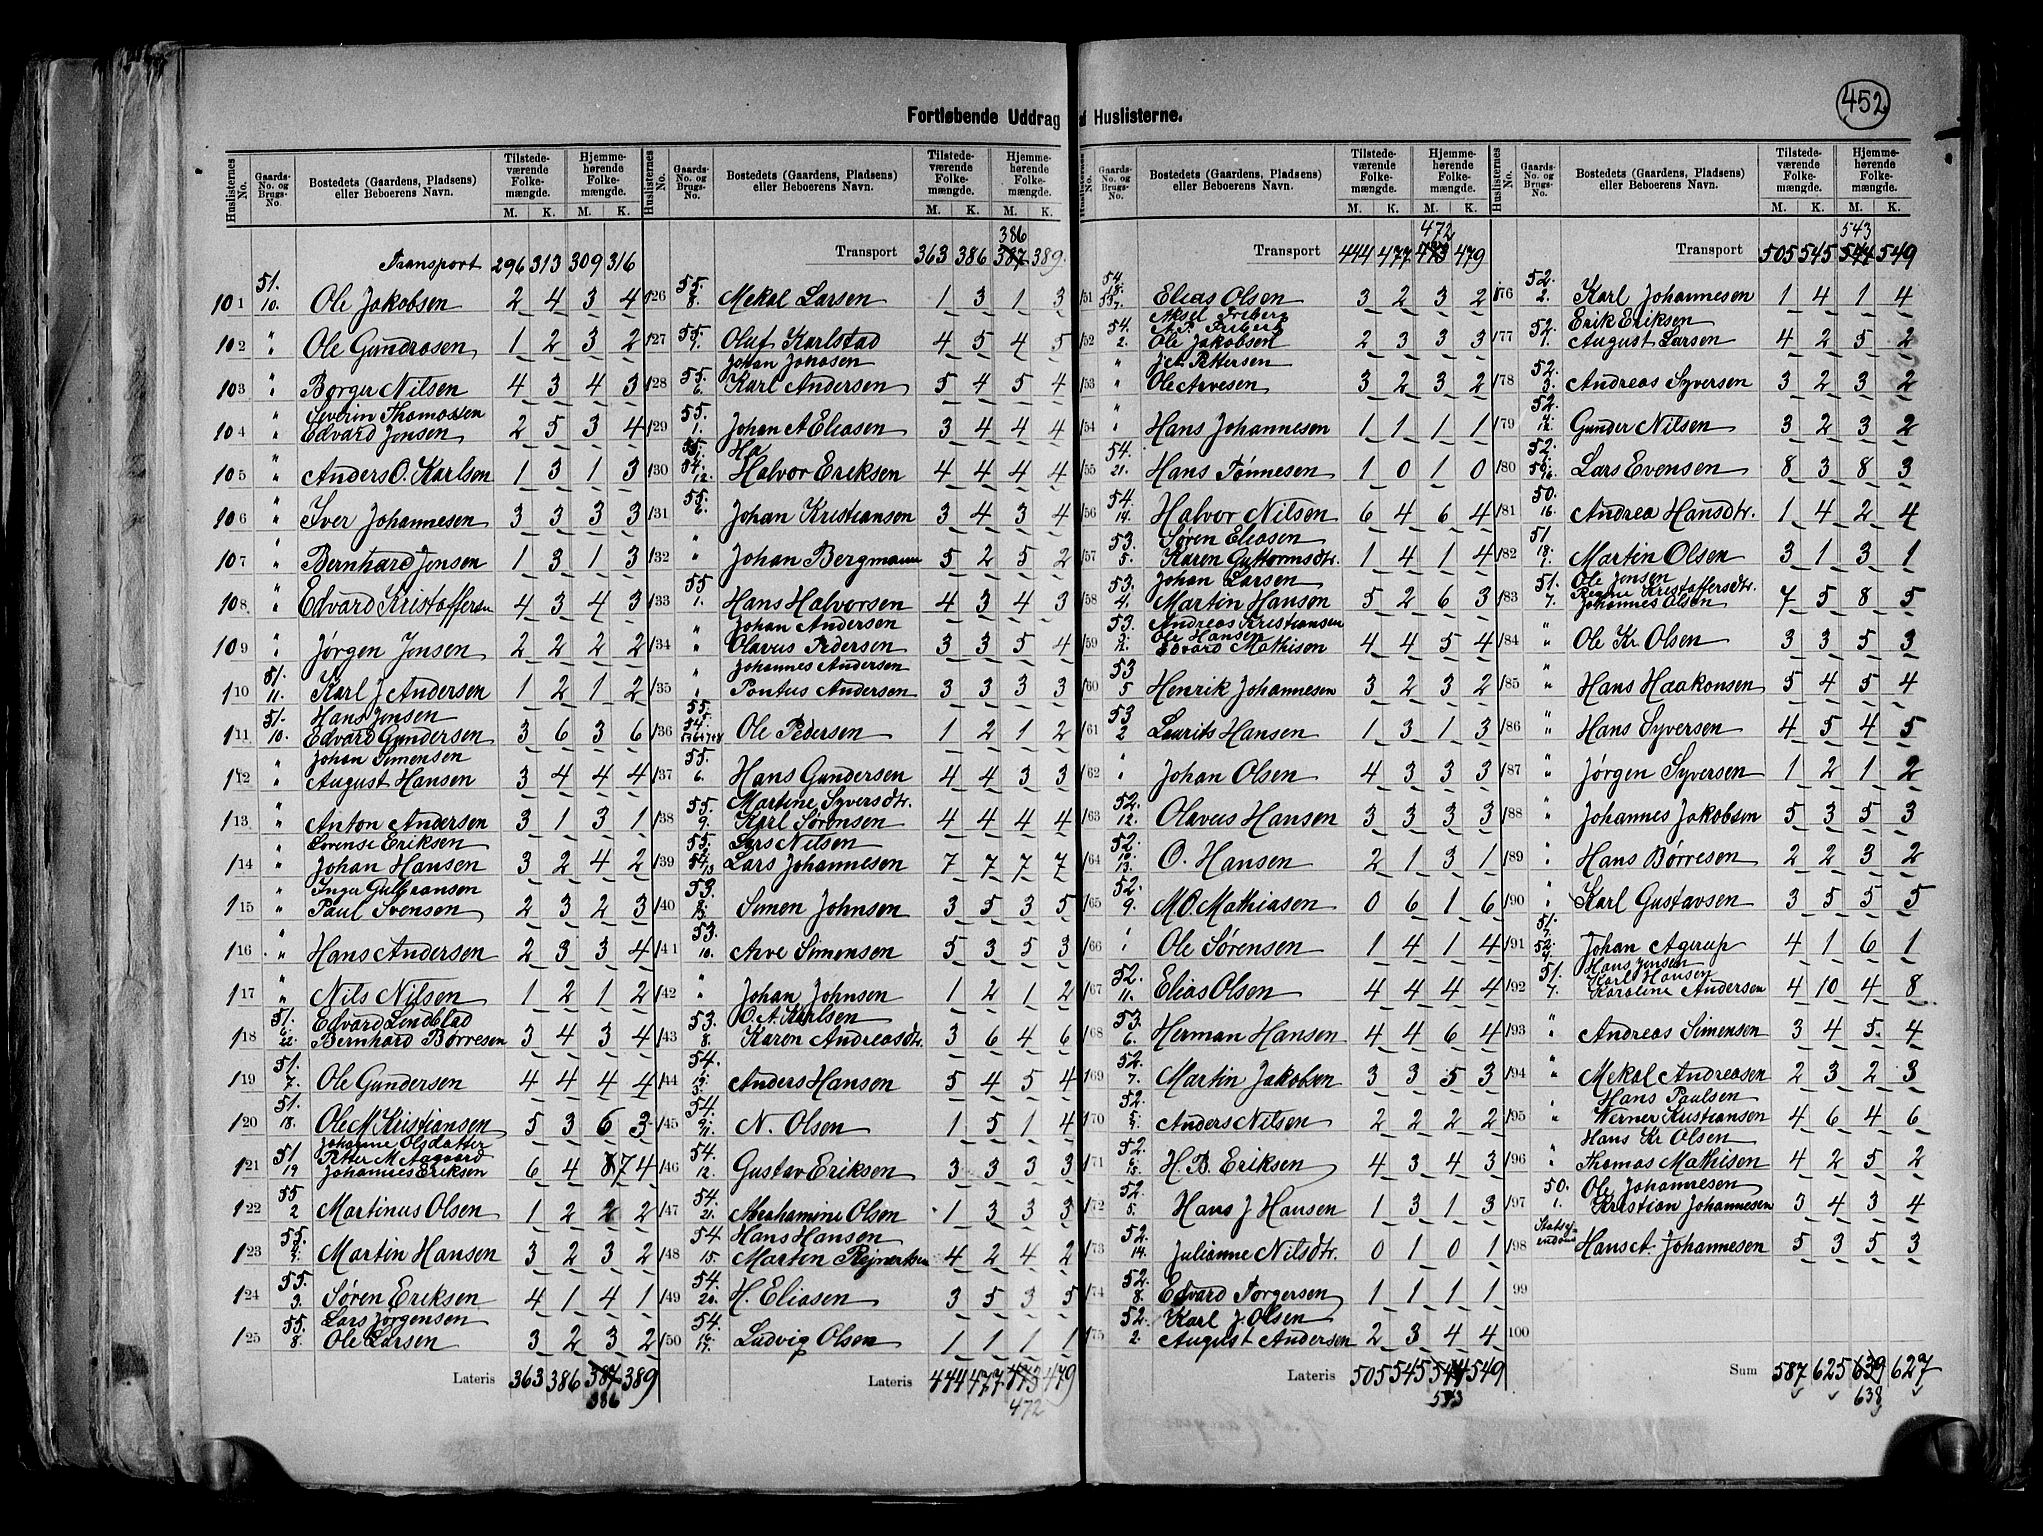 452
Fortløbende Uddrag af Huslisterne.
Huslisternes No. Gaards-No. og Brugs-No. Bostedets (Gaardens, Pladsens) eller Beboerens Navn. Tilstedeværende Folkemængde. M. K. Hjemmehørende Folkemængde. M. K.
Transport 296 313 309 316
101 51. 10. Ole Jakobsen 2 4 3 4
102 " Ole Gundrosen 1 2 3 2
103 " Borger Nilsen 4 3 4 3
104 " Severin Thomassen
Edvard Jensen 2 5 3 4
105 " Anders O. Karlsen 1 3 1 3
106 " Iver Johannesen 3 3 3 3
107 " Bernhard Jensen 1 3 1 3
108 " Edvard Kristoffersen 4 3 4 3
109 " Jørgen Jensen 2 2 2 2
110 51. 11. Karl J Andersen 1 2 1 2
111 51. 10. Hans Jensen
Edvard Gundersen 3 6 3 6
112 " Johan Simensen
August Hansen 3 4 4 4
113 " Anton Andersen 3 1 3 1
114 " Lorense Eriksen
Johan Hansen 3 2 4 2
115 " Inger Gulbransen
Paul Svensen 2 3 2 3
116 " Hans Andersen 2 3 3 4
117 " Nils Nilsen 1 2 1 2
118 51. 6. 22. Edvard Lindblad
Bernhard Børresen 3 4 3 4
119 51. 7. Ole Gundersen 4 4 4 4
120 51. 18. Ole M Kristiansen 5 3 6 3
121 51 19 Johanne Olsdatter
Petter M Aagaard
Johannes Eriksen 6 4 7 4
122 55 2 Martinus Olsen 1 2 2 2
123 55. Martin Hansen 3 2 3 2
124 55. 3. Søren Eriksen 4 1 4 1
125 55. 8. Lars Jørgensen
Ole Larsen 3 2 3 2
Lateris 363 386 387 389
386
Huslisternes No. Gaards-No. og Brugs-No. Bostedets (Gaardens, Pladsens) eller Beboerens Navn. Tilstedeværende Folkemængde. M. K. Hjemmehørende Folkemængde. M. K.
386
Transport 363 386 387 389
126 55. 8. Mekal Larsen 1 3 1 3
127 55. 7. Oluf Karlstad 4 5 4 5
128 55. 6. Johan Johnsen
Karl Andersen 5 4 5 4
129 55. 1. Johan A Eliasen 3 4 4 4
130 55. 54. 12. Ha
Halvor Eriksen 4 4 4 4
131 55. 6. Johan Kristiansen 3 4 3 4
132 " Johan Bergmann 5 2 5 2
133 55 1. Hans Halvorsen 4 3 4 3
134 " Johan Andersen
Olavus Pedersen 3 3 5 4
135 " Johannes Andersen
Pontus Andersen 3 3 3 3
136 55. 54. Ole Pedersen 1 2 1 2
137 55. 6. Hans Gundersen 4 4 3 3
138 55. 9. Martine Syversdtr.
Karl Sørensen 4 4 4 4
139 55. 54. 13 Lars Nilsen
Lars Johannesen 7 7 7 7
140 53. Simen Johnsen 3 5 3 5
141 53. 10. Arve Simensen 5 3 5 3
142 " Johan Johnsen 1 2 1 2
143 53. 8. O. A. Karlsen
Karen Andreasdtr. 3 6 4 6
144 54. Anders Hansen 5 4 5 4
145 54. 21. N. Olsen 1 5 1 4
146 54. 12. Gustav Eriksen 3 3 3 3
147 54. 21. Abrahamine Olsen 1 3 3 3
148 54 15. Hans Hansen
Martin Rejnertsen 4 2 4 2
149 54. 20. H. Eliasen 3 5 3 5
150 54 Ludvig Olsen 1 1 1 1
Lateris 444 477 473 479
472
Huslisternes No. Gaards-No. og Brugs-No. Bostedets (Gaardens, Pladsens) eller Beboerens Navn. Tilstedeværende Folkemængde. M. K. Hjemmehørende Folkemængde. M. K.
472
Transport 444 477 473 479
151 54. 18. Elias Olsen 3 2 3 2
152 54. 2. Aksel Friberg
A. P. Friberg
Ole Jakobsen 2 3 3 3
153 " Jet. Pettersen
Ole Arvesen 3 2 3 2
154 " Hans Johannesen 1 1 1 1
155 54. 21. Hans Tønnesen 1 0 1 0
156 54. 14. Halvor Nilsen 6 4 6 4
157 53. 5. Søren Eliasen
Karen Guttormsdtr. 1 4 1 4
158 53. 4. Johan Larsen
Martin Hansen 5 2 6 3
159 53. Andreas Kristiansen
Ole Hansen
Edvard Mathisen 4 4 5 4
160 53 5 Henrik Johannesen 3 2 3 2
161 53 2 Laurits Hansen 1 3 1 3
162 " Johan Olsen 4 3 3 3
163 52. 12. Olavus Hansen 3 3 3 3
164 52. 13. O. Hansen 2 1 3 1
165 52. 9. M. O. Mathiasen 0 6 1 6
166 " Ole Sørensen 1 4 1 4
167 52. 11. Elias Olsen 4 4 4 4
168 53. 6. Herman Hansen 4 4 6 4
169 52. 7. Martin Jakobsen 3 3 5 3
170 52. Anders Nilsen 2 2 2 2
171 52. H. B. Eriksen 4 3 4 3
172 52. 5. Hans J Hansen 1 3 1 3
173 52. 14. Julianne Nilsdtr. 0 1 0 1
174 52. 8. Edvard Torgersen 1 1 1 1
175 52. 2. Karl J. Olsen
August Andersen 2 3 4 4
Lateris 505 545 544 549
543
Huslisternes No. Gaards-No. og Brugs-No. Bostedets (Gaardens, Pladsens) eller Beboerens Navn. Tilstedeværende Folkemængde. M. K. Hjemmehørende Folkemængde. M. K.
543
Transport 505 545 544 549
176 52. 2. Karl Johannesen 1 4 1 4
177 52. 1. Erik Eriksen
August Larsen 4 2 5 2
178 52. 3. Andreas Syversen 3 2 3 2
179 52. Gunder Nilsen 3 2 3 2
180 52. 50. 16. Lars Evensen 8 3 8 3
181 50. 16. Andrea Hansdtr. 1 4 2 4
182 51 18. Martin Olsen 3 1 3 1
183 51. 7. Ole Jensen
Regine Kristoffersdtr.
Johannes Olsen 7 5 8 5
184 " Ole Kr. Olsen 3 3 5 3
185 " Hans Haakonsen 5 4 5 4
186 " Hans Syversen 4 5 4 5
187 " Jørgen Syversen 1 2 1 2
188 " Johannes Jakobsen 5 3 5 3
189 " Hans Børresen 2 2 3 2
190 " Karl Gustavsen 3 5 5 5
191 51. 7. 52. Johan Agerup 4 1 6 1
192 51. 7. Hans Jensen
Karl Hansen
Karoline Andersen 4 10 4 8
193 " Andreas Simensen 3 4 5 4
194 " Mekal Andreasen 2 3 2 3
195 " Hans Paulsen
Werner Kristiansen 4 6 4 6
196 " Hans Kr. Olsen
Thomas Mathisen 4 2 5 2
197 50. 1. Ole Johannesen
Kristian Johannesen 3 4 3 4
198 Hans A. Johannesen 5 3 5 3
99
100
Sum 587 625 639 627
638